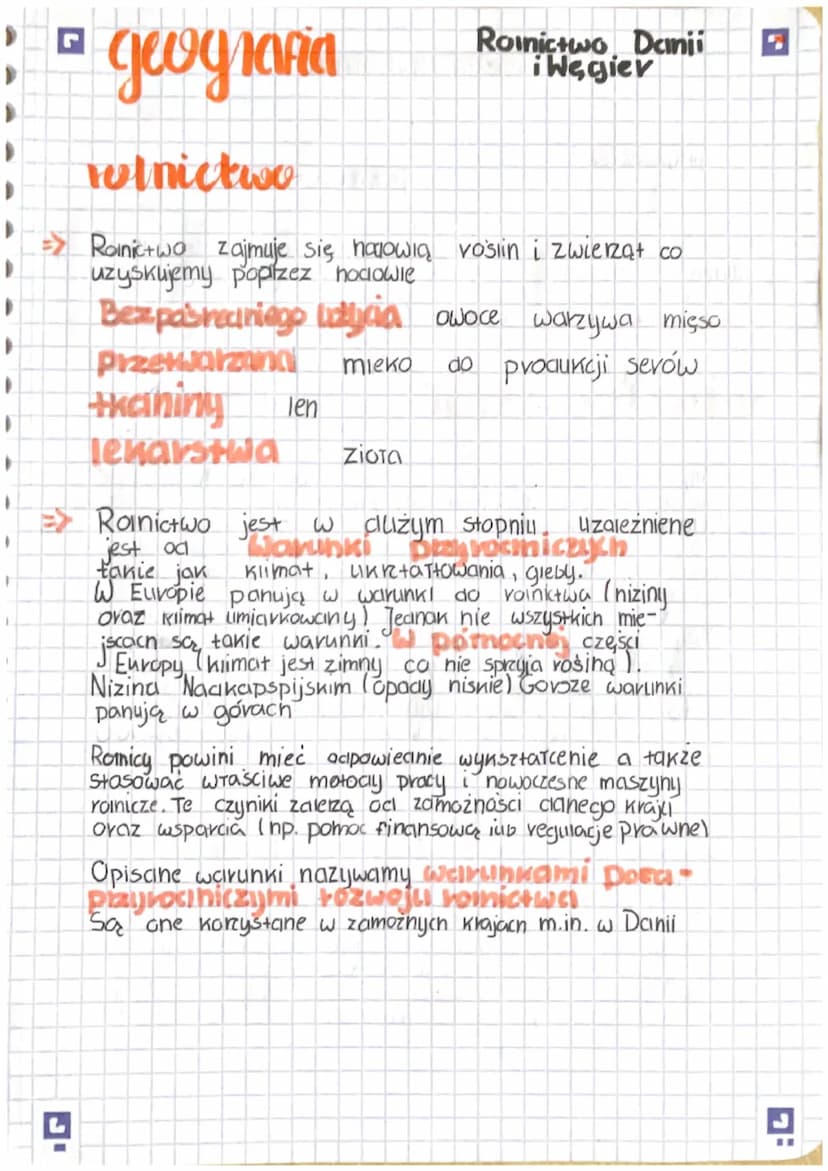 geografia
Rolnictwo Danii
i Węgier
rolnictwo
=> Rolnictwo zajmuje się hodowlą roślin i zwierząt co
uzyskujemy poprzez hodowle
Bezpośredniego użycia owoce warzywa mięso
przetwarzana mleko do produkcji serów
tkaniny len
lekarstwa zioła
=> Rolnictwo jest w dużym stopniu uzależniene
jest od warunki przyrodniczych
takie jak klimat, ukrztałtowania, gleby.
W Europie panują w warunki do rolnictwa (niziny
oraz klimat umiarkowany) Jednak nie wszystkich mie-
jscach są takie warunki. W północnej części
Europy (klimat jest zimny co nie sprzyja rośliną).
Nizina Nadkapspijskim (opady niskie) Gorsze warunki
panują w górach
Rolnicy powini mieć odpowiednie wykształcenie a także
stosować właściwe metody pracy i nowoczesne maszyny
rolnicze. Te czyniki zależą od zamożności danego kraju
oraz wsparcia (np. pomoc finansową lub regulacje prawne)
Opisane warunki nazywamy warunkami poza-
przyrodniczymi rozwoju rolnictwa
Są one korzystane w zamożnych krajach m.in. w Danii